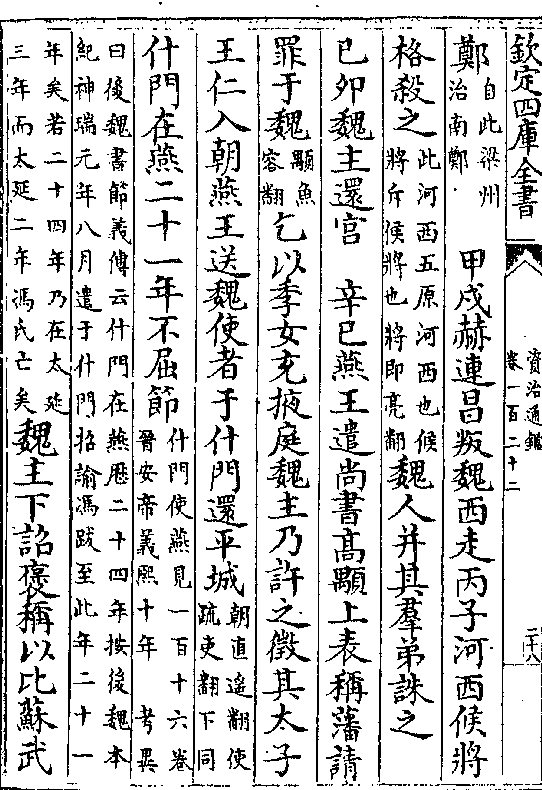 欽定四庫全書
資治通鑑
卷一百二十二
二十八
鄭自此梁州治南鄭　甲戌赫連昌叛魏西走丙子河西候將
格殺之此河西五原河西也候將斥候將也將即亮翻魏人并其羣弟誅之
己卯魏主還宮　辛巳燕王遣尚書高顒上表稱藩請
罪于魏顒魚容翻乞以季女充掖庭魏主乃許之徵其太子
王仁入朝燕王送魏使者于什門還平城朝直遥翻使疏吏翻下同
什門在燕二十一年不屈節什門使燕見一百十六卷晉安帝義熙十年　考異
曰後魏書節義傳云什門在燕歷二十四年按後魏本紀神瑞元年八月遣于什門招諭馮跋至此年二十一
年矣若二十四年乃在太延三年而太延二年馮氏亡矣魏主下詔褒稱以比蘇武